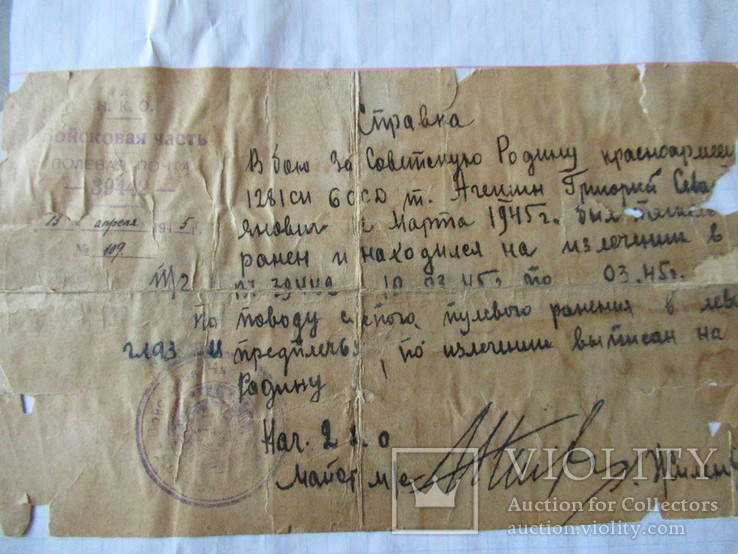 Н. К. О.
Войсковая часть
ПОЛЕВАЯ ПОЧТА
апреля 1945 г.
№ 109
Справка
В бою за Советскую Родину красноармеец
1281 СП 60 СД т. Агешин Григорий Сева
янович Марта 1945г. был
ранен и находился на излечении в
39442 10.03.45г по 03.45г.
по поводу слепого пулевого ранения в лев
глаз и предплечья, по излечении выписан на
Родину
Нач. 2
Майор м/с
VIOLITY
Auction for Collectors
auction.violity.com